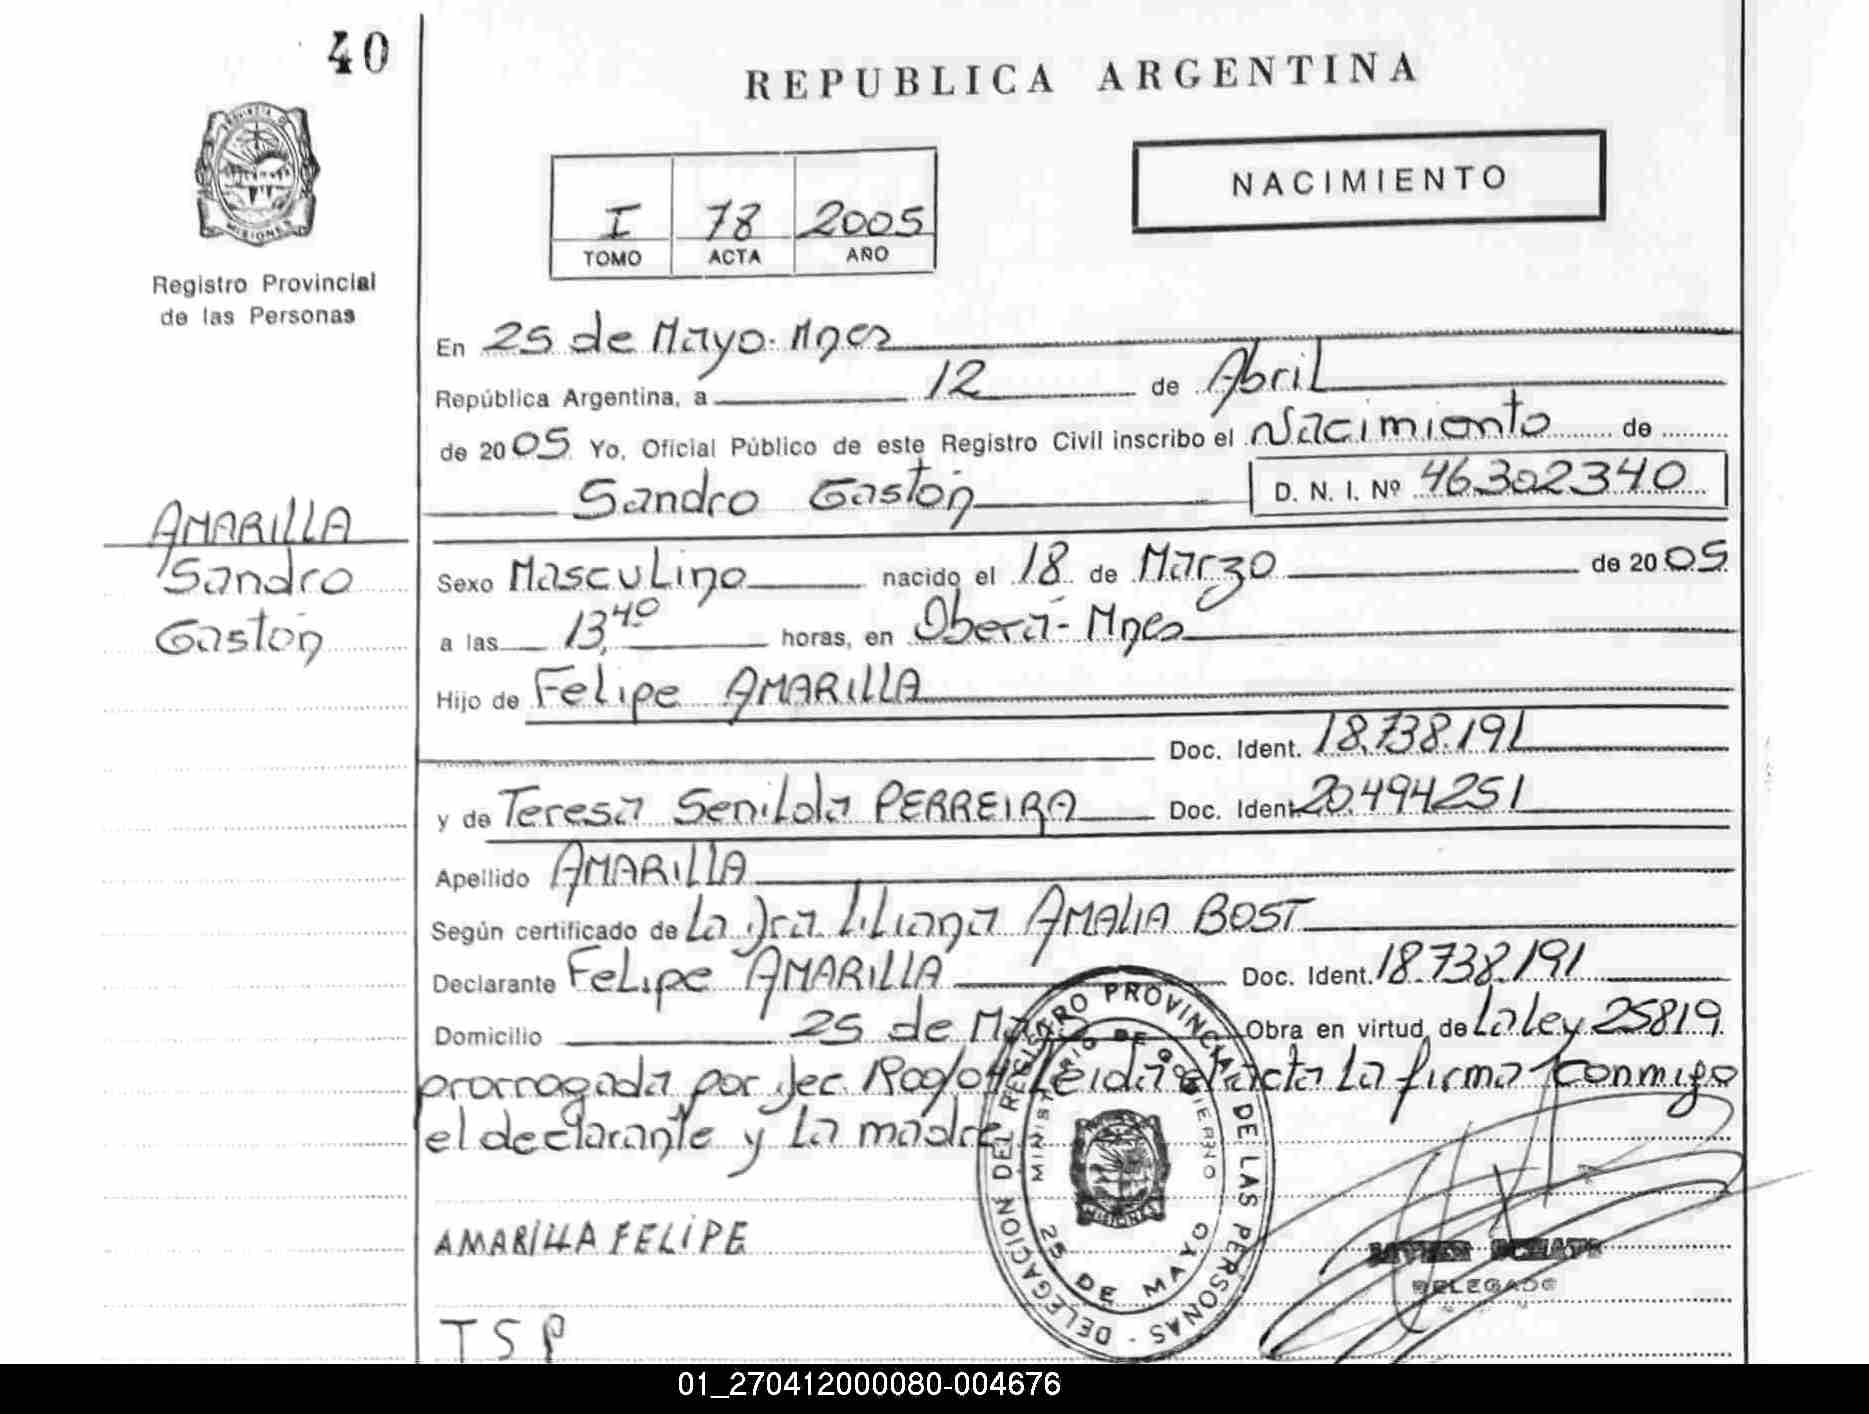 40
REPUBLICA ARGENTINA
NACIMIENTO
I 78 2005
TOMO ACTA AÑO
PROVINCIA D
MISIONES
Registro Provincial
de las Personas
En 25 de Mayo. Mnes
República Argentina, a 12 de Abril
de 2005 Yo, Oficial Público de este Registro Civil inscribo el Nacimiento de
Sandro Gastón D. N. I. Nº 46302340
AMARILLA
Sandro
Gastón
Sexo Masculino nacido el 18 de Marzo de 2005
a las 13,40 horas, en Oberá - Mnes
Hijo de Felipe AMARILLA
Doc. Ident. 18.738.191
y de Teresa Senilda PERREIRA Doc. Ident. 20.494251
Apellido AMARILLA
Según certificado de La Dra Liliana AMALIA BOST
Declarante Felipe AMARILLA Doc. Ident. 18.738.191
Domicilio 25 de Mayo Obra en virtud de La ley 25819
prorrogada por Dec. 1900/04 Leida el acta La firma conmigo
el declarante y La madre
AMARILLA FELIPE
DELEGACION DEL REGISTRO PROVINCIAL DE LAS PERSONAS -
MINISTERIO DE GOBIERNO
MISIONES
25 DE MAYO
DELEGADO
T S P
01_270412000080-004676